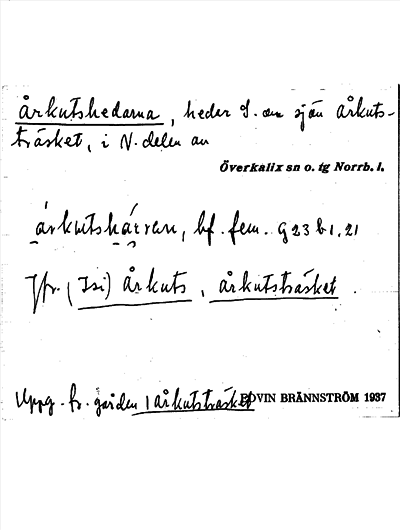 årkutshedarna, heder S. om sjön årkuts-
träsket, i N. delen av
Överkalix sn o. tg Norrb. l.
árkutshárran, bf. fem. g 23 b 1, 21
Jfr. (Isi) årkuts, årkutsträsket.
Uppg. fr. gården 1 årkutsträsket EDVIN BRÄNNSTRÖM 1937